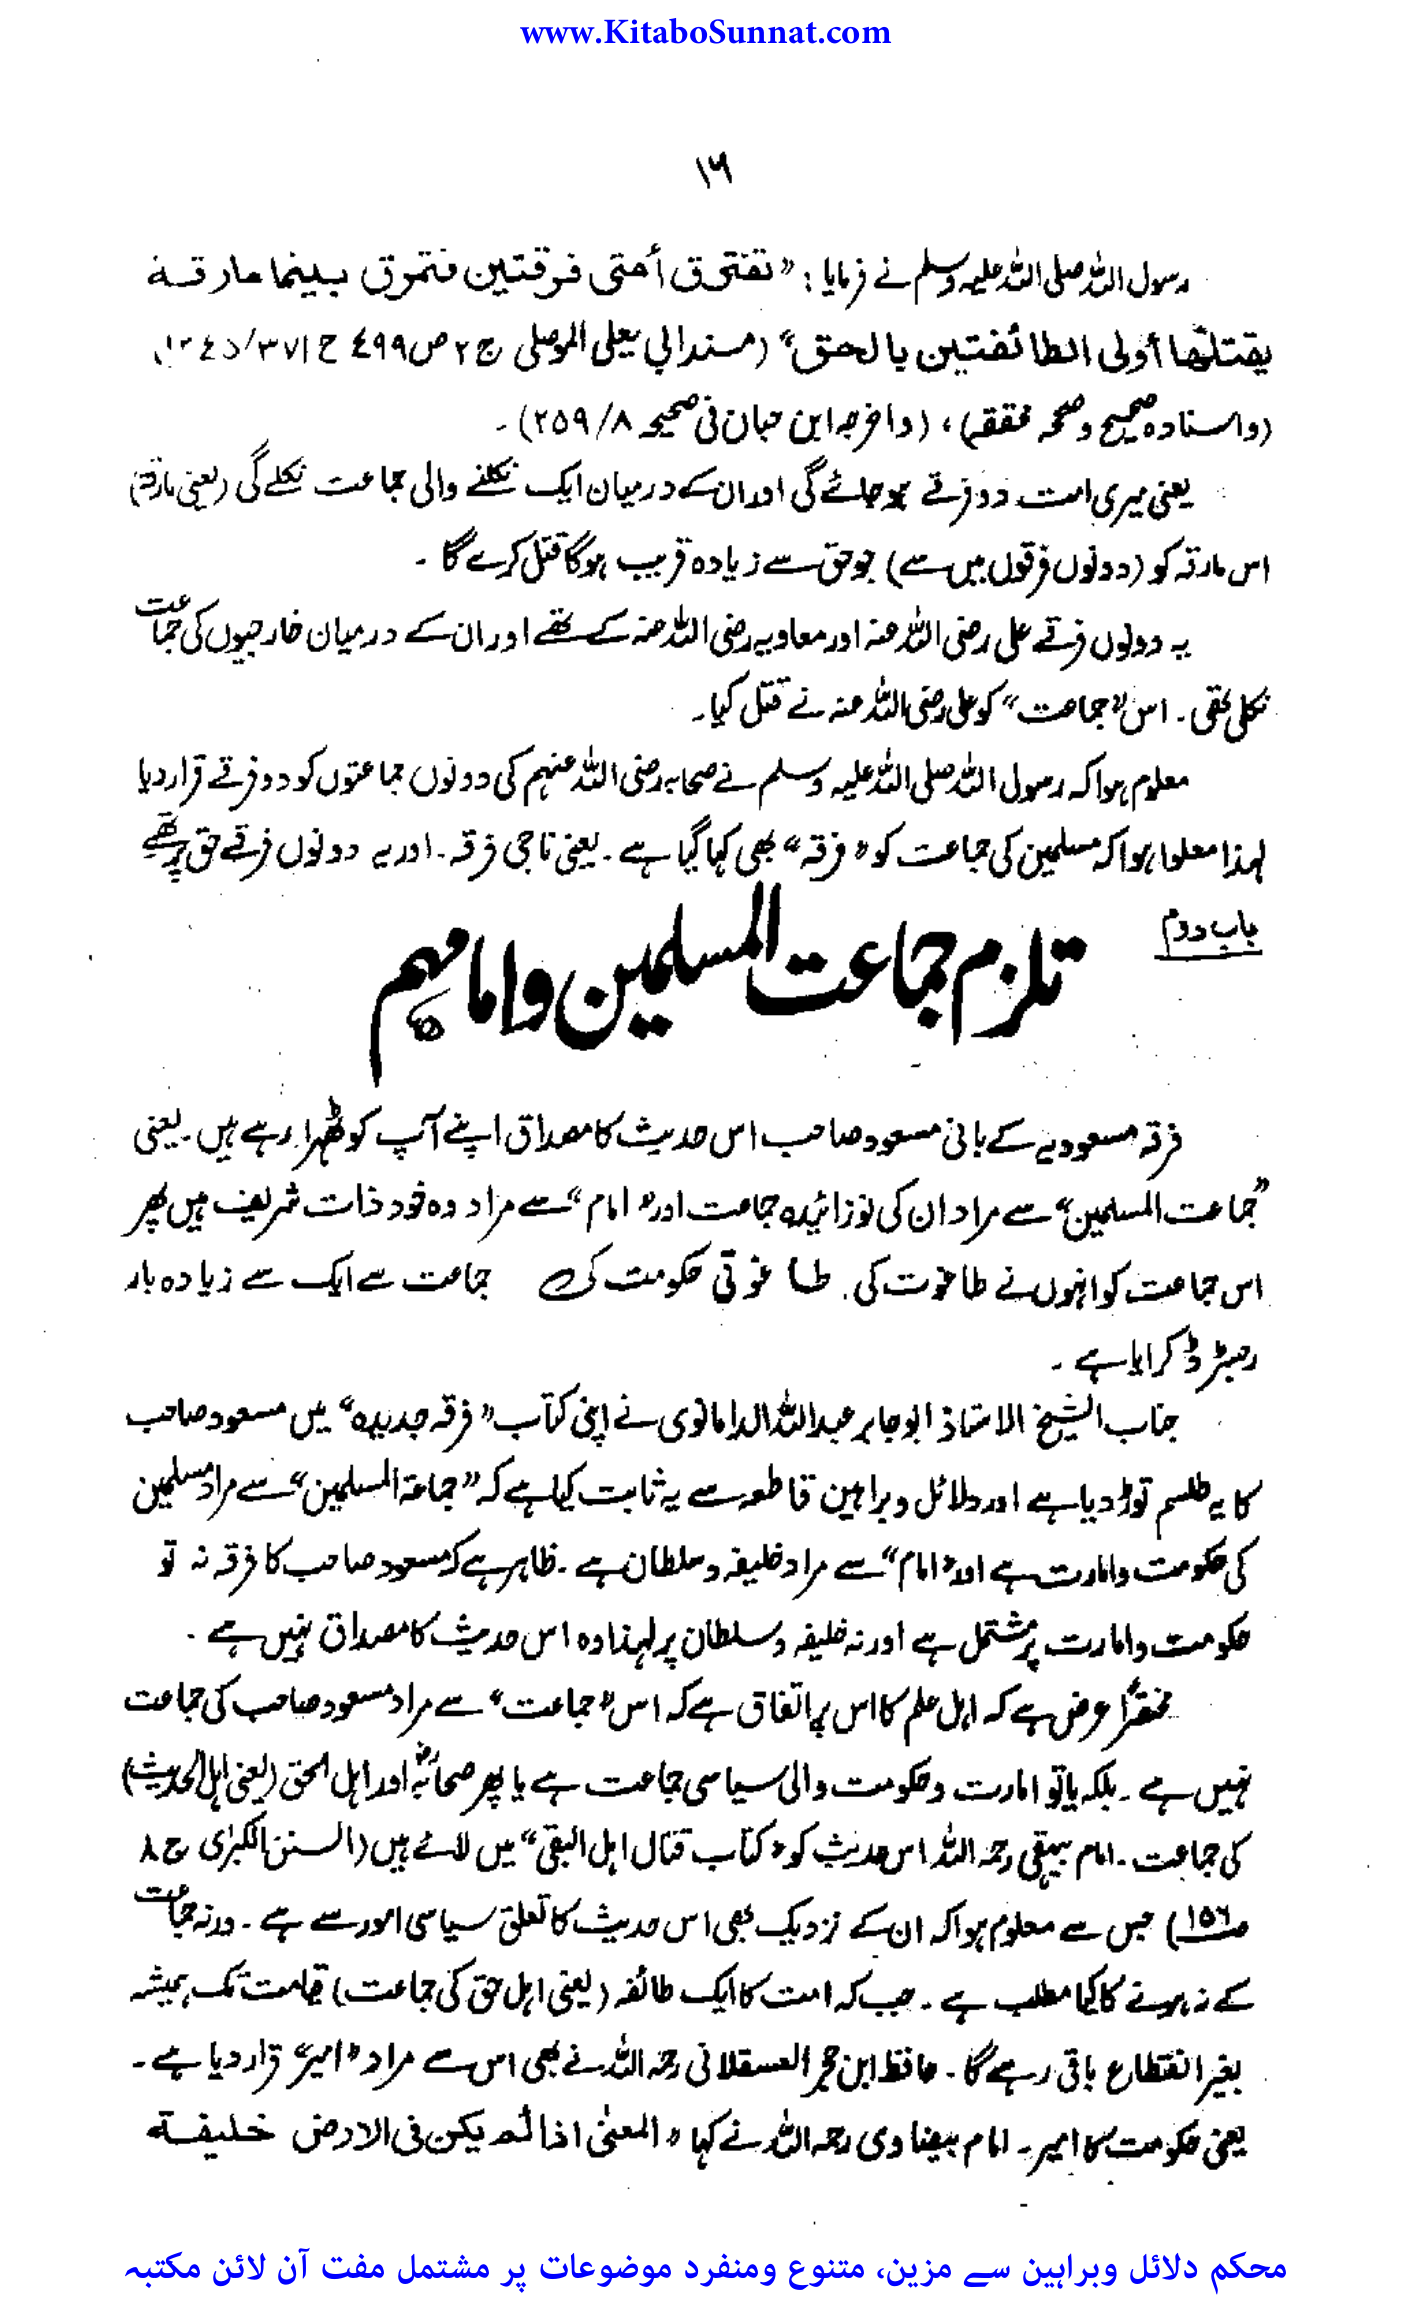 www.KitaboSunnat.com
۱۶
رسول اللہ صلی اللہ علیہ وسلم نے فرمایا : "تفترق أمتی فرقتین فتمرق بینھما مارقة
یقتلھا أولی الطائفتین بالحق" (مسند ابي یعلی الموصلی ج ۲ ص ٤٩٩ ح
(واسنادہ صحیح وصححہ محققہ) ، (واخرجہ ابن حبان فی صحیحہ ۸/ ۲۵۹) ۔
یعنی میری امت دو فرقے ہو جائے گی اور ان کے درمیان ایک نکلنے والی جماعت نکلے گی (یعنی مارقہ)
اس مارقہ کو (دونوں فرقوں میں سے) جو حق سے زیادہ قریب ہو گا قتل کرے گا ۔
یہ دونوں فرقے علی رضی اللہ عنہ اور معاویہ رضی اللہ عنہ کے تھے اور ان کے درمیان خارجیوں کی جماعت
نکلی تھی ۔ اس "جماعت" کو علی رضی اللہ عنہ نے قتل کیا ۔
معلوم ہوا کہ رسول اللہ صلی اللہ علیہ وسلم نے صحابہ رضی اللہ عنہم کی دونوں جماعتوں کو دو فرقے قرار دیا
لہذا معلوم ہوا کہ مسلمین کی جماعت کو "فرقہ" بھی کہا گیا ہے ۔ یعنی ناجی فرقہ ۔ اور یہ دونوں فرقے حق پر تھے
باب دوم
تلزم جماعت المسلمین وامامھم
فرقہ مسعودیہ کے بانی مسعود صاحب اس حدیث کا مصداق اپنے آپ کو ٹھہرا رہے ہیں ۔ یعنی
"جماعت المسلمین" سے مراد ان کی نوزائیدہ جماعت اور "امام" سے مراد وہ خود ذات شریف ہیں پھر
اس جماعت کو انہوں نے طاغوت کی طاغوتی حکومت کی جماعت سے ایک سے زیادہ بار
رجسٹرڈ کرایا ہے ۔
جناب الشیخ الاستاذ ابو جابر عبداللہ الدامانوی نے اپنی کتاب "فرقہ جدیدہ" میں مسعود صاحب
کا یہ طلسم توڑ دیا ہے اور دلائل و براہین قاطعہ سے یہ ثابت کیا ہے کہ "جماعۃ المسلمین" سے مراد مسلمین
کی حکومت و امارت ہے اور "امام" سے مراد خلیفہ و سلطان ہے ۔ ظاہر ہے کہ مسعود صاحب کا فرقہ نہ تو
حکومت و امارت پر مشتمل ہے اور نہ خلیفہ و سلطان پر لہذا وہ اس حدیث کا مصداق نہیں ہے ۔
مختصراً عرض ہے کہ اہل علم کا اس پر اتفاق ہے کہ اس "جماعت" سے مراد مسعود صاحب کی جماعت
نہیں ہے ۔ بلکہ یا تو امارت و حکومت والی سیاسی جماعت ہے یا پھر صحابہؓ اور اہل الحق (یعنی اہل الحدیث)
کی جماعت ۔ امام بیہقی رحمہ اللہ اس حدیث کو "کتاب قتال اہل البغی" میں لائے ہیں (السنن الکبریٰ ج ۸
صـ ۱۵٦) جس سے معلوم ہوا کہ ان کے نزدیک بھی اس حدیث کا تعلق سیاسی امور سے ہے ۔ ورنہ جماعت
کے نہ ہونے کا کیا مطلب ہے ۔ جب کہ امت کا ایک طائفہ (یعنی اہل حق کی جماعت) قیامت تک ہمیشہ
بغیر انقطاع باقی رہے گا ۔ حافظ ابن حجر العسقلانی رحمہ اللہ نے بھی اس سے مراد "امیر" قرار دیا ہے ۔
یعنی حکومت کا امیر ۔ امام بیضاوی رحمہ اللہ نے کہا "المعنیٰ اذا لم یکن فی الارض خلیفة
محکم دلائل وبراہین سے مزین، متنوع ومنفرد موضوعات پر مشتمل مفت آن لائن مکتبہ